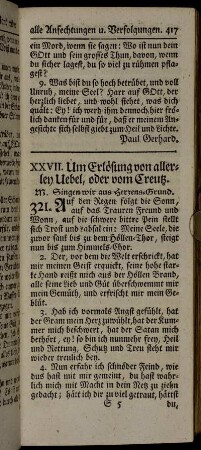 alle Anfechtungen u. Verfolgungen. 417
ein Mord, wenn sie sagen: Wo ist nun dein
GOtt und sein grosses Thun, davon, wenn
du sicher lagest, du so viel zu rühmen pfla-
gest?
9. Was bist du so hoch betrübet, und voll
Unruh, meine Seel? Harr auf GOtt, der
herzlich liebet, und wohl siehet, was dich
quält: Ey! ich werd ihm dennoch hier frö-
lich danken für und für, daß er meinem An-
gesichte sich selbst giebt zum Heil und Lichte.
Paul Gerhard.
XXVII. Um Erlösung von aller-
ley Uebel, oder vom Creutz.
M. Singen wir aus Herzens-Grund.
321. Auf den Regen folgt die Sonn,
auf das Trauren Freud und
Wonn, auf die schwere bittre Pein stellt
sich Trost und Labsal ein: Meine Seele, die
zuvor sunk bis zu dem Höllen-Thor, steigt
nun bis zum Himmels-Chor.
2. Der, vor dem die Welt erschrickt, hat
mir meinen Geist erquickt, seine hohe star-
ke Hand reißt mich aus der Höllen Brand,
alle seine Lieb und Güt überschwemmt mir
mein Gemüth, und erfrischt mir mein Ge-
blüt.
3. Hab ich vormals Angst gefühlt, hat
der Gram mein Herz zuwühlt, hat der Kum-
mer mich beschwert, hat der Satan mich
bethört, ey! so bin ich nunmehr frey, Heil
und Rettung, Schutz und Treu steht mir
wieder treulich bey.
4. Nun erfahr ich schnöder Feind, wie
du's hast mit mir gemeint, du hast wahr-
lich mich mit Macht in dein Netz zu ziehn
gedacht; hätt ich dir zu viel getraut, hättst
S 5 du,